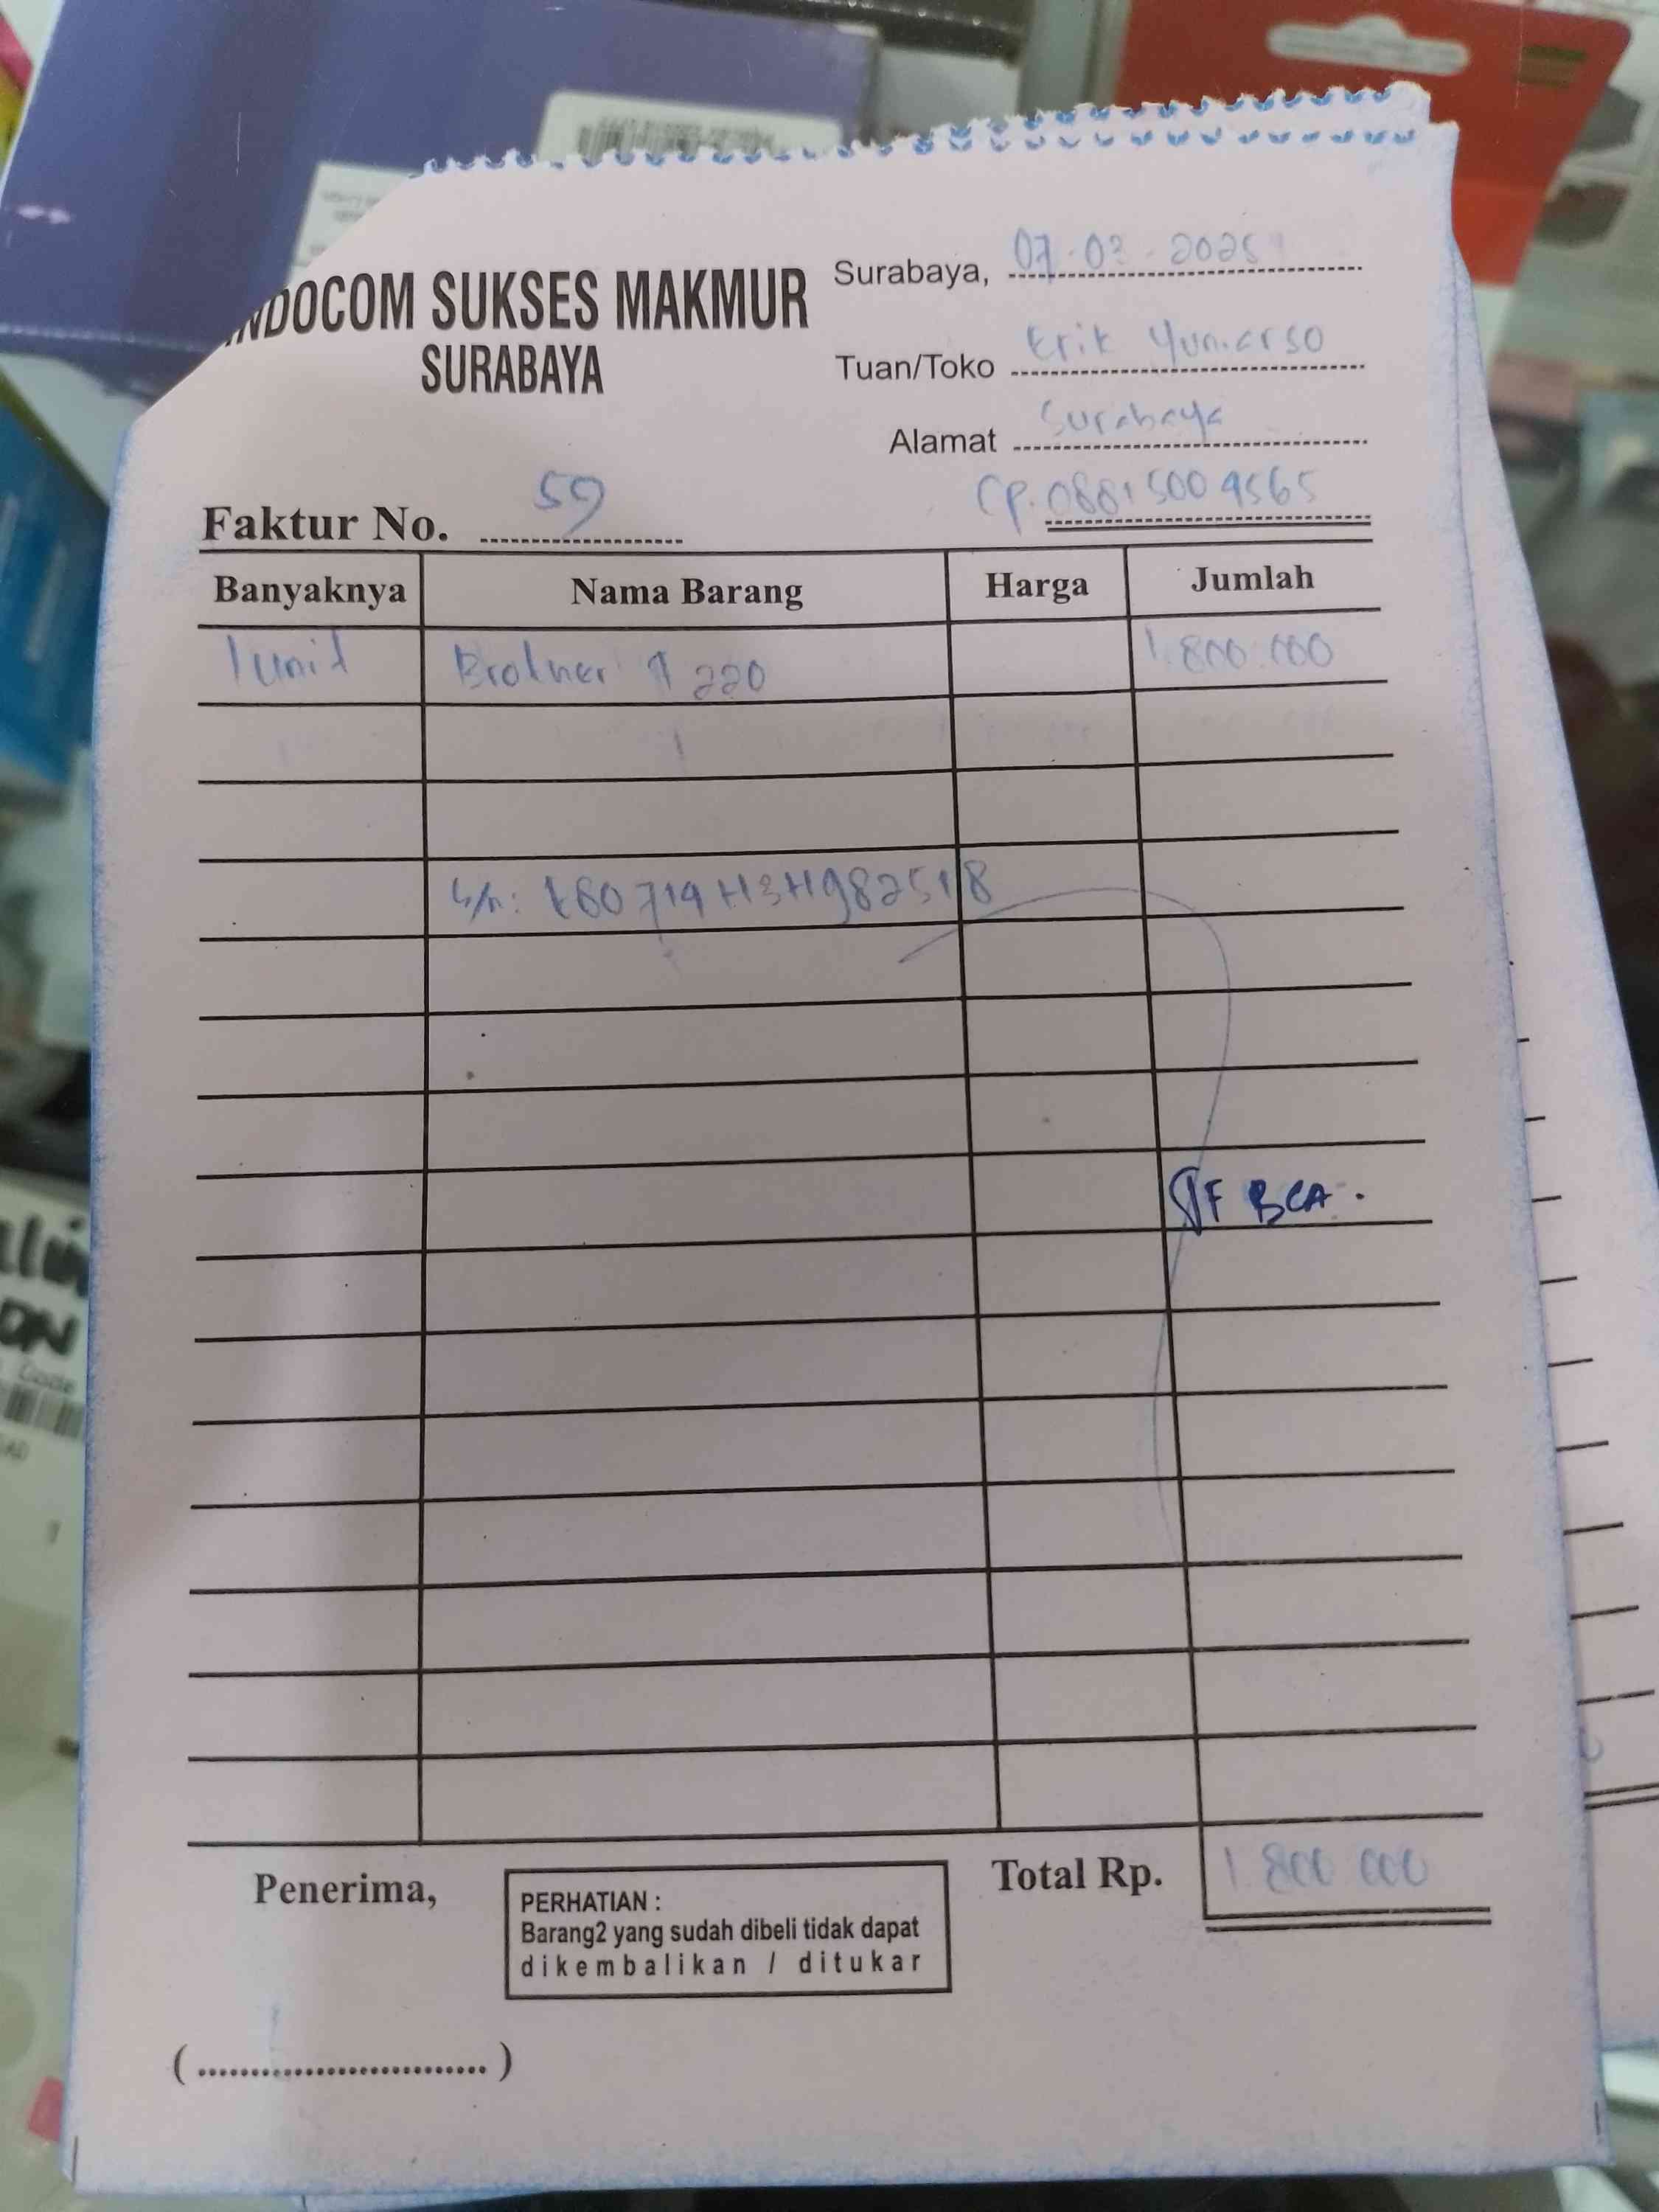 INDOCOM SUKSES MAKMUR
SURABAYA
Surabaya, 07-03-2025
Tuan/Toko Erik Yuniarso
Alamat Surabaya
CP. 088150049565
Faktur No. 59
Banyaknya Nama Barang Harga Jumlah
1 unit Brother T 220 1.800.000
S/n: E80719H3H982518
TF BCA.
Penerima, Total Rp. 1.800.000
PERHATIAN :
Barang2 yang sudah dibeli tidak dapat
dikembalikan / ditukar
(............................)